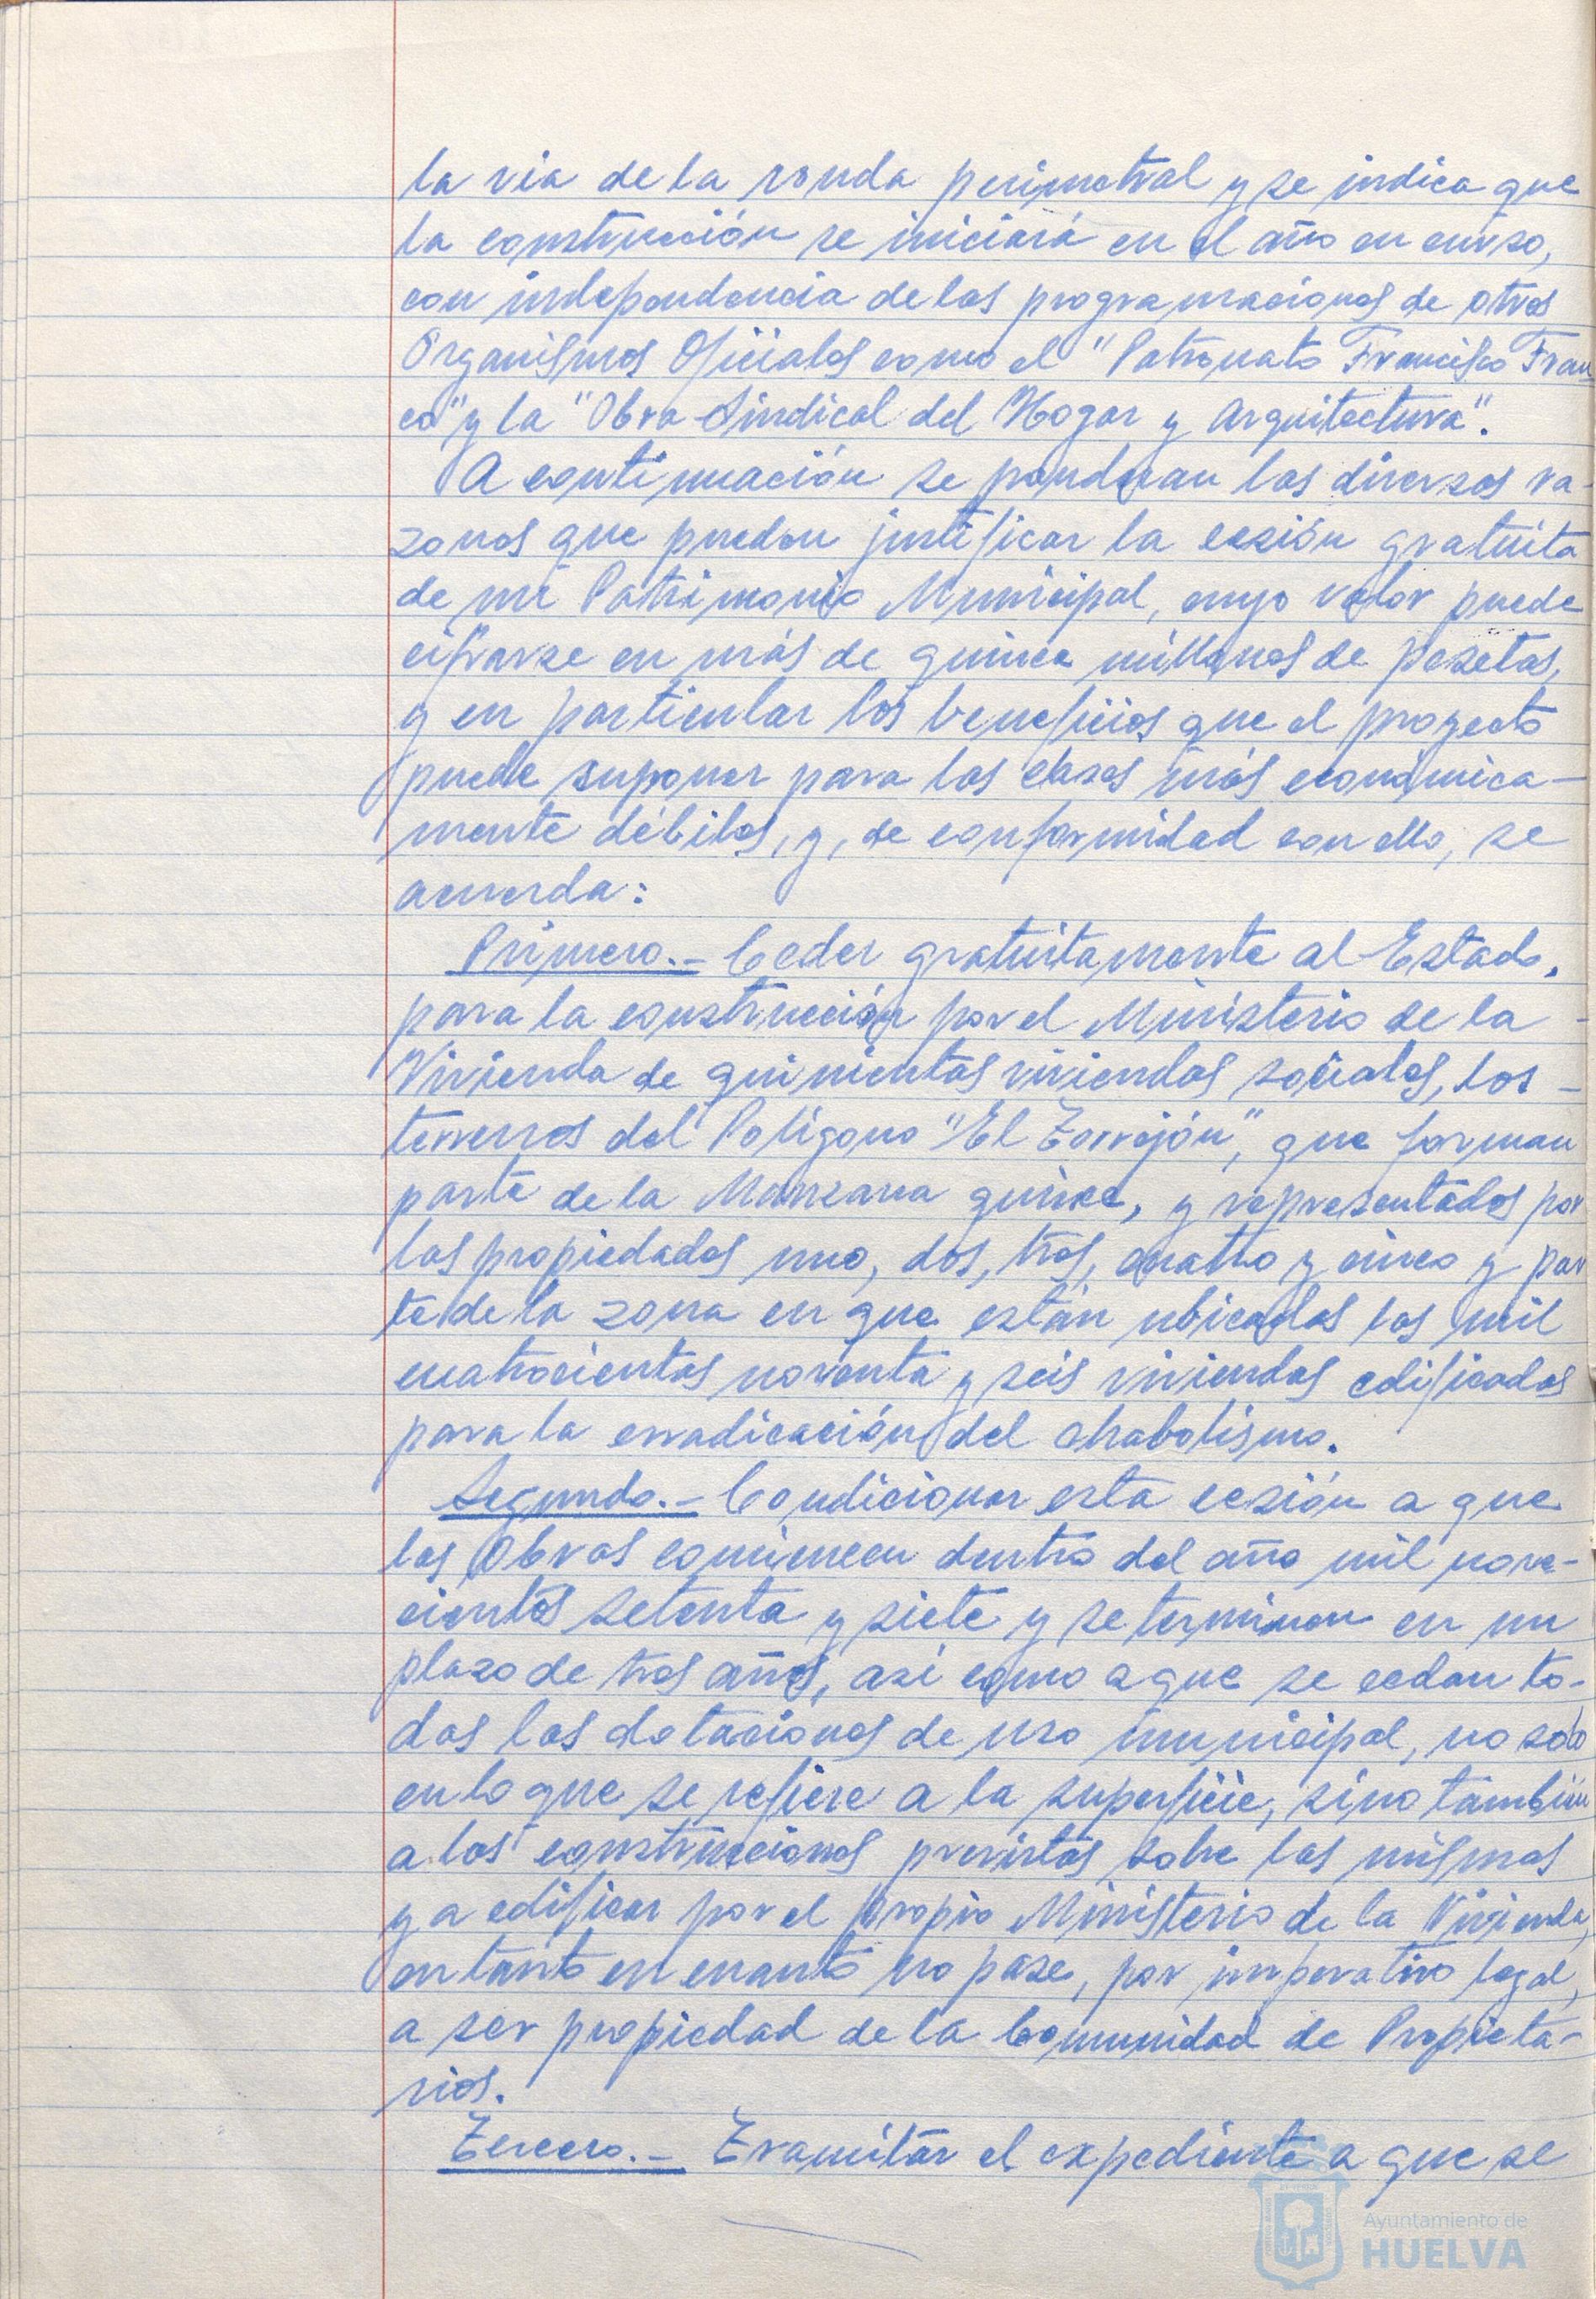 la via de la ronda perimetral y se indica que
la construcción se iniciará en el año en curso,
con independencia de las programaciones de otros
Organismos Oficiales como el "Patronato Francisco Fran
co" y la "Obra Sindical del Hogar y Arquitectura".
A continuación se ponderan las diversas ra-
zones que pueden justificar la cesión gratuita
de un Patrimonio Municipal, cuyo valor puede
cifrarse en más de quince millones de pesetas,
y en particular los beneficios que el proyecto
puede suponer para las clases más económica-
mente débiles, y, de conformidad con ello, se
acuerda:
Primero.- Ceder gratuitamente al Estado,
para la construcción por el Ministerio de la -
Vivienda de quinientas viviendas sociales, los -
terrenos del Polígono "El Torrejón", que forman
parte de la Manzana quince, y representados por
las propiedades uno, dos, tres, cuatro y cinco y par
te de la zona en que están ubicadas las mil
cuatrocientas noventa y seis viviendas edificadas
para la erradicación del chabolismo.
Segundo.- Condicionar esta cesión a que
las Obras comiencen dentro del año mil nove-
cientos setenta y siete y se terminen en un
plazo de tres años, asi como a que se cedan to-
das las dotaciones de uso municipal, no solo
en lo que se refiere a la superficie, sino también
a las construcciones previstas sobre las mismas
y a edificar por el propio Ministerio de la Vivienda,
en tanto en cuanto no pase, por imperativo legal,
a ser propiedad de la Comunidad de Propieta-
rios.
Tercero.- Tramitar el expediente a que se
Ayuntamiento de
HUELVA